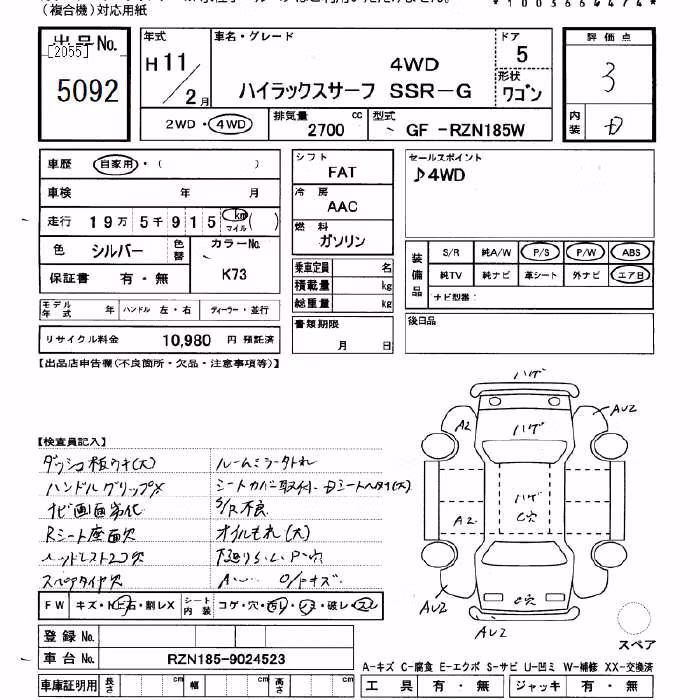 (複合機)対応用紙
*10036644 74*
出品No.
[2055]
5092
年式
H11/2月
車名・グレード
4WD
ハイラックスサーフ SSR-G
ドア
5
形状
ワゴン
評価点
3
内装
D
2WD・4WD
排気量
2700 cc
型式
GF -RZN185W
車歴 自家用・( )
車検 年 月
走行 19万5千915 km マイル ( )
色 シルバー 色替
カラーNo.
K73
保証書 有・無
シフト
FAT
冷房
AAC
燃料
ガソリン
乗車定員 名
積載量 kg
総重量 kg
書類期限
月 日
セールスポイント
♪4WD
装備品
S/R 純A/W P/S P/W ABS
純TV 純ナビ 革シート 外ナビ エアB
ナビ型番:
後日品
モデル年式 年 ハンドル 左・右 ディーラー・並行
リサイクル料金 10,980 円 預託済
【出品店申告欄(不良箇所・欠品・注意事項等)】
【検査員記入】
ダッシュ板ワキ(大)
ハンドルグリップX
ナビ画面劣化
Rシート座面穴
ヘッドレスト2コ穴
スペアタイヤ穴
ルームミラー外れ
シートカバー取付
S/R不良
オイルもれ(大)
ハゲ
AU2
A2
ハゲ
ハゲ
C穴
A2
AU2
C穴
AU2
AU2
スペア
FW キズ・飛石・割レX
シート内装 コゲ・穴・汚レ・シミ・破レ・スレ
登録No.
車台No. RZN185-9024523
車庫証明用 長さ cm 幅 cm 高さ cm
A-キズ C-腐食 E-エクボ S-サビ U-凹ミ W-補修 XX-交換済
工具 有・無 ジャッキ 有・無